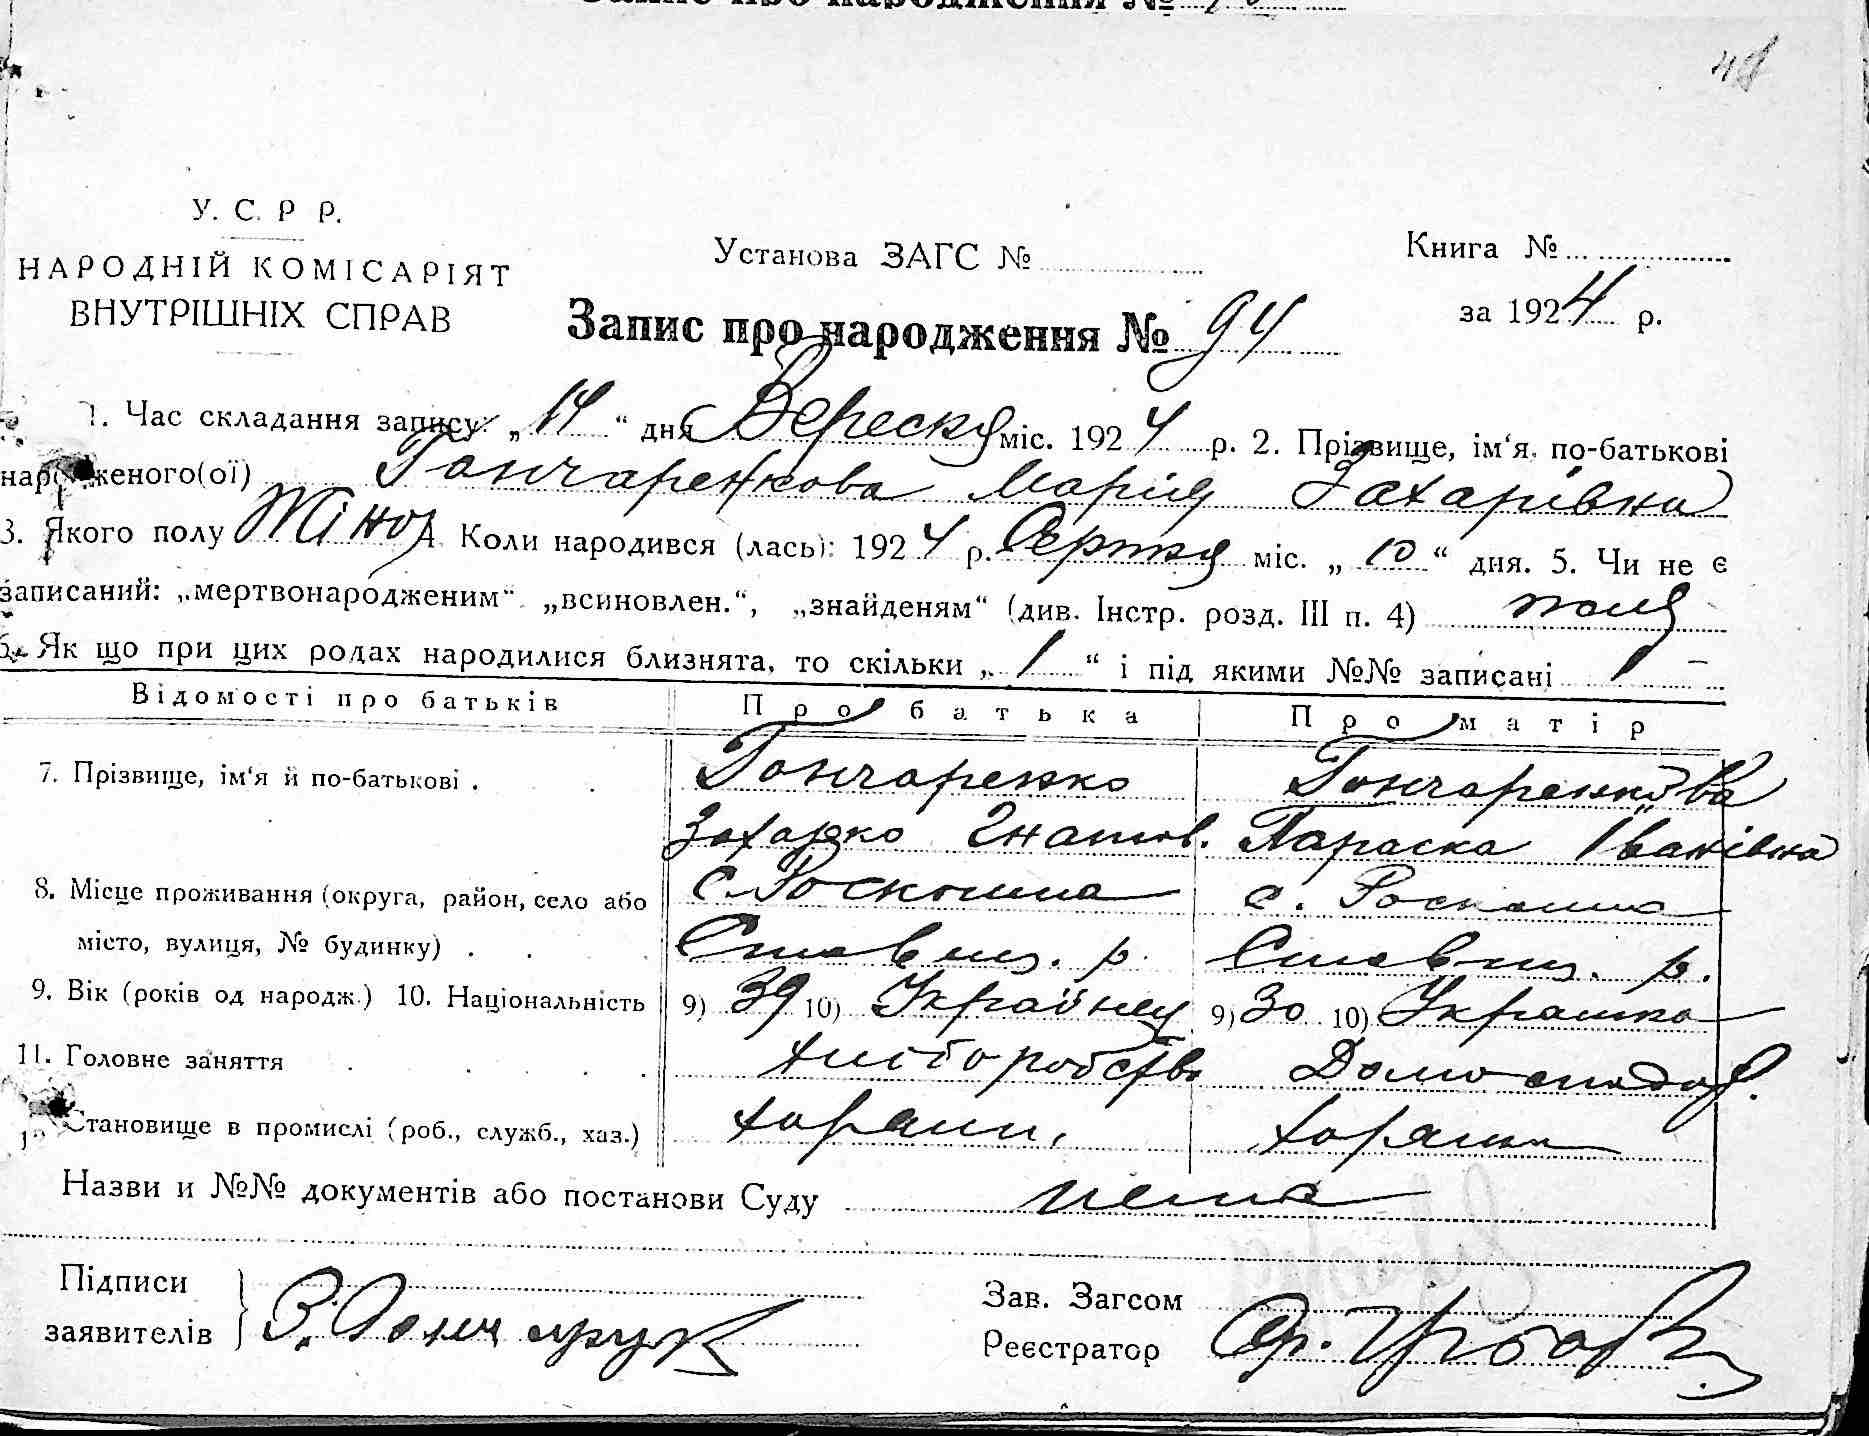 Запис про народження №
48
У. С. Р Р.
НАРОДНІЙ КОМІСАРІЯТ
ВНУТРІШНІХ СПРАВ
Установа ЗАГС №
Книга №
за 1924 р.
Запис про народження № 94
1. Час складання запису: „14“ дня Вересня міс. 1924 р. 2. Прізвище, ім‘я, по-батькові
народженого(ої) Гончаренкова Марія Захарівна
3. Якого полу Жіноч. 4. Коли народився (лась): 1924 р. Серпня міс. „10“ дня. 5. Чи не є
записаний: „мертвонародженим“, „всиновлен.“, „знайденям“ (див. Інстр. розд. III п. 4)
6. Як що при цих родах народилися близнята, то скільки „1“ і під якими №№ записані –
Відомості про батьків Про батька Про матір
7. Прізвище, ім‘я й по-батькові . Гончаренко Гончаренкова
Захарко Гнатов. Параска Іванівна
8. Місце проживання (округа, район, село або с. Роскошна с. Роскошна
місто, вулиця, № будинку) . Ставищ. р. Ставищ. р.
9. Вік (років од народж.) 10. Національність 9) 39 10) Українец 9) 30 10) Українка
11. Головне заняття хліборобств
Становище в промислі (роб., служб., хаз.)
Назви и №№ документів або постанови Суду нема
Підписи
заявителів
З. Гончарук
Зав. Загсом
Реєстратор